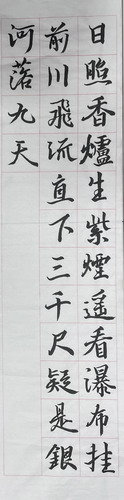 日照香爐生紫煙遙看瀑布挂
前川飛流直下三千尺疑是銀
河落九天